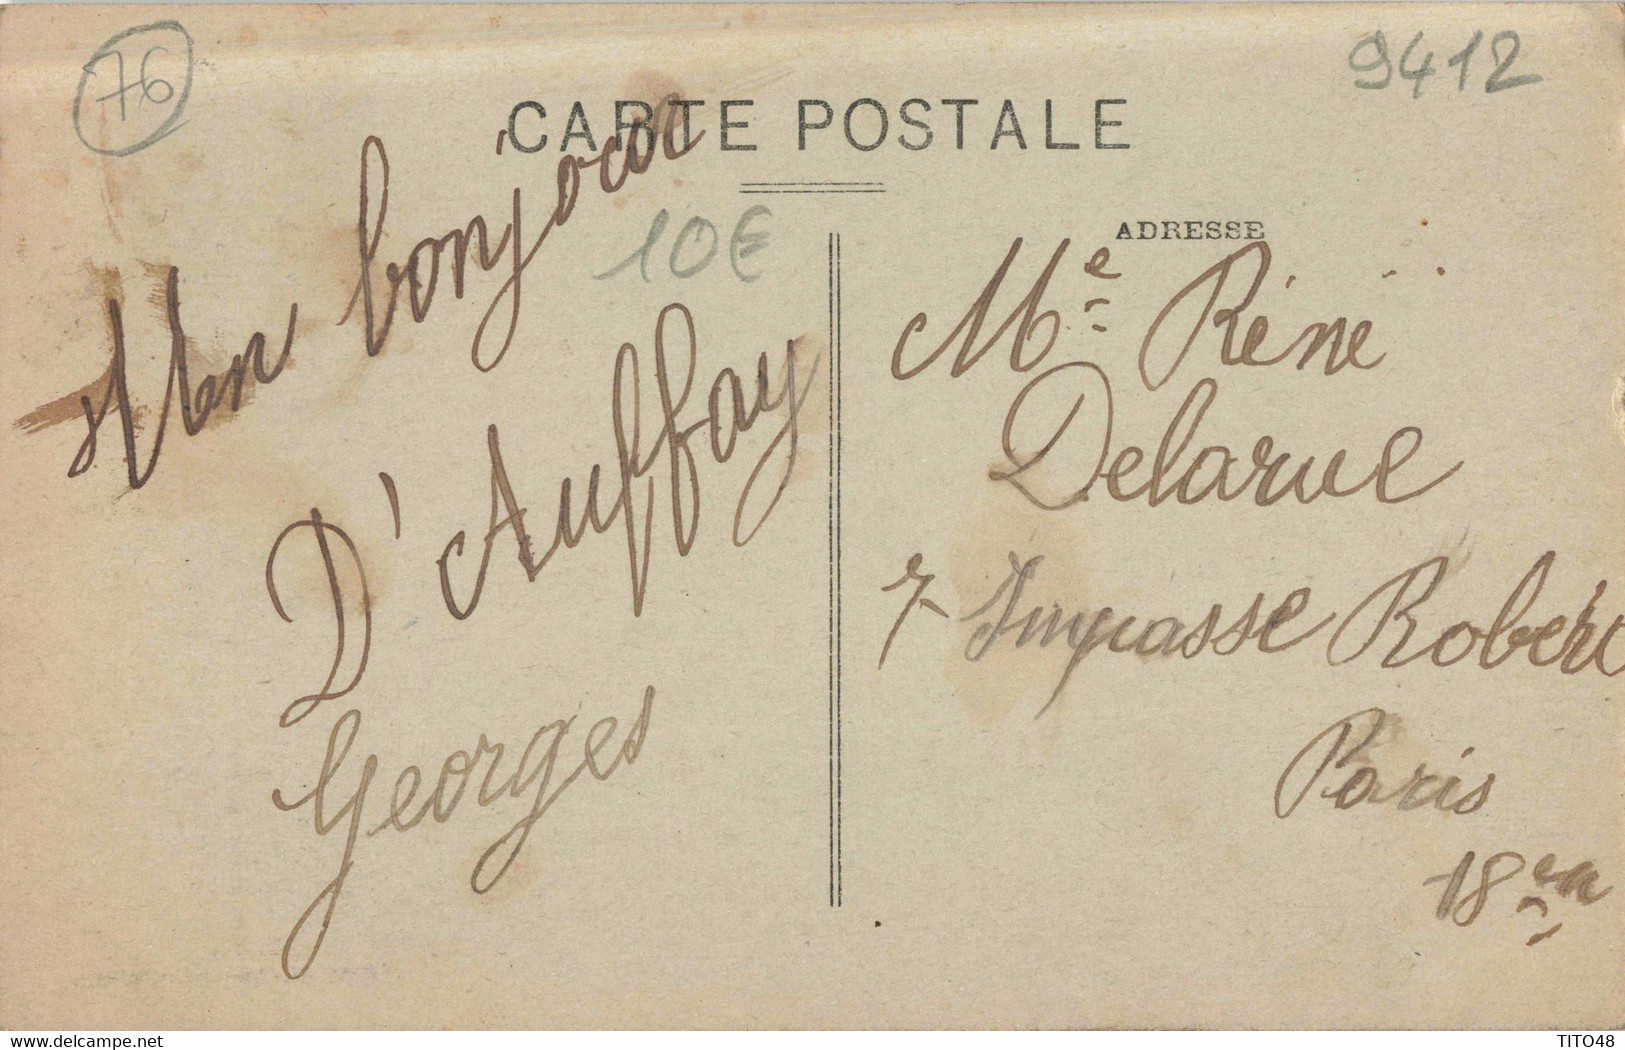 76
9412
CARTE POSTALE
10€
Un bonjour
D'Auffay
Georges
ADRESSE
Me Réné
Delarue
7 Impasse Robert
Paris
18em
TITO48